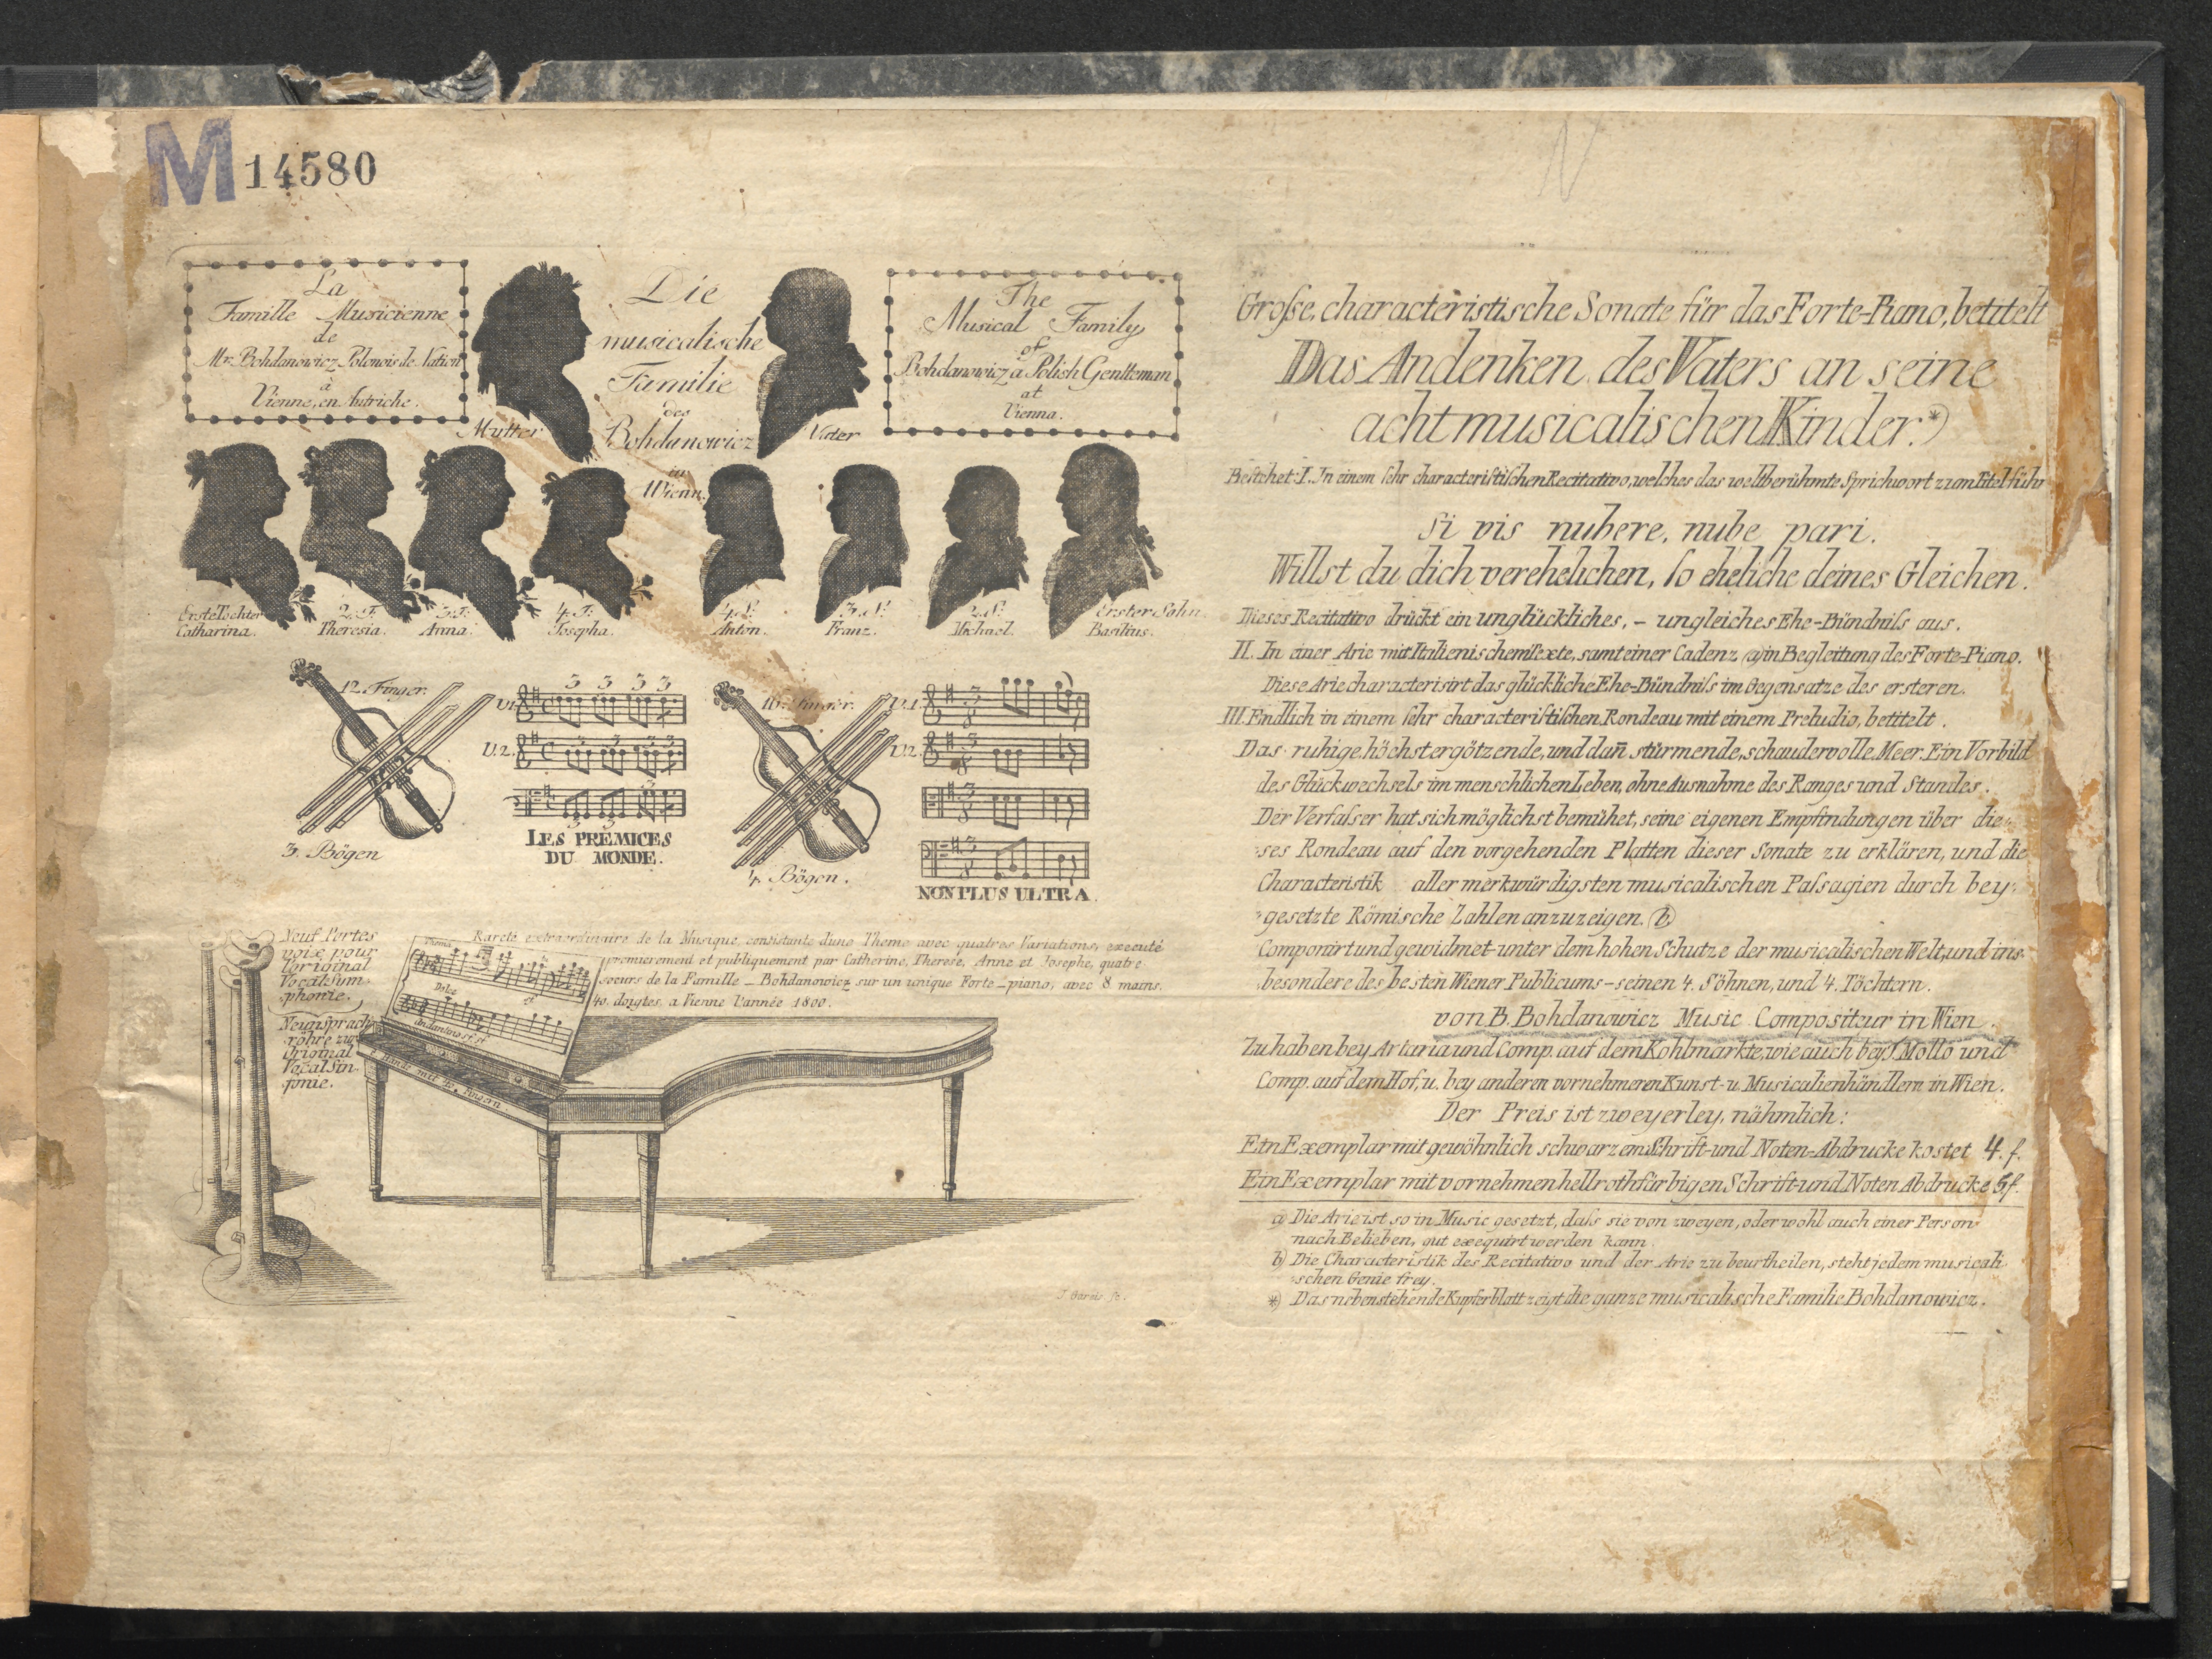 M 14580
La
Famille Musicienne
de
Mr. Bohdanowicz Polonois de Nation
à
Vienne, en Autriche.
Die
musicalische
Familie
des
Bohdanowicz
in
Wienn.
Mutter
Vater
The
Musical Family
of
Bohdanowicz a Polish Gentleman
at
Vienna.
Erste Tochter
Catharina.
2. T.
Theresia.
3. T.
Anna.
4. T.
Josepha.
4. S.
Anton.
3. S.
Franz.
2. S.
Michael.
Erster Sohn
Basilius.
12. Finger.
3. Bögen
V.1.
V.2.
3 3 3 3
LES PRÉMICES
DU MONDE.
16. Finger.
4. Bögen.
V.1.
V.2.
NON PLUS ULTRA.
Neuf Portes
voix pour
l'original
Vocalsim-
phonie.
Neunsprach-
röhre zur
Original
Vocalsin-
fonie.
Rareté extraordinaire de la Musique, consistante d'une Theme avec quatres Variations, executé
premierement et publiquement par Catherine, Therese, Anne et Josephe, quatre
soeurs de la Famille - Bohdanowicz sur un unique Forte-piano, avec 8 mains.
40. doigtes, a Vienne l'année 1800.
Thema
Dolce
Andantino
8. Hände mit 40. Fingern.
Grosse characteristische Sonate für das Forte-Piano, betitelt
Das Andenken des Vaters an seine
acht musicalischen Kinder.*)
Bestehet: I. In einem sehr characteristischen Recitativo, welches das weltberühmte Sprichwort zum Titel führ
Si vis nubere, nube pari.
Willst du dich verehelichen, so eheliche deines Gleichen.
Dieses Recitativo drückt ein unglückliches, - ungleiches Ehe-Bündniss aus.
II. In einer Arie mit Italienischem Texte, samt einer Cadenz (a) in Begleitung des Forte-Piano.
Diese Arie characterisirt das glückliche Ehe-Bündniss im Gegensatze des ersteren.
III. Endlich in einem sehr characteristischen Rondeau mit einem Preludio, betitelt.
Das ruhige, höchst ergötzende, und dañ stürmende, schaudervolle Meer. Ein Vorbild
des Glückwechsels im menschlichen Leben, ohne Ausnahme des Ranges und Standes.
Der Verfasser hat sich möglichst bemühet, seine eigenen Empfindungen über die-
ses Rondeau auf den vorgehenden Platten dieser Sonate zu erklären, und die
Characteristik aller merkwürdigsten musicalischen Passagien durch bey-
gesetzte Römische Zahlen anzuzeigen. (b)
Componirt und gewidmet unter dem hohen Schutze der musicalischen Welt, und ins-
besondere des besten Wiener Publicums - seinen 4. Söhnen, und 4. Töchtern.
von B. Bohdanowicz Music Compositeur in Wien.
Zu haben bey Artaria und Comp. auf dem Kohlmarkte, wie auch bey T. Mollo und
Comp. auf dem Hof, u. bey anderen vornehmeren Kunst- u. Musicalienhändlern in Wien.
Der Preis ist zweyerley, nähmlich:
Ein Exemplar mit gewöhnlich schwarzem Schrift- und Noten-Abdrucke kostet 4. f.
Ein Exemplar mit vornehmen hellrothfärbigen Schrift- und Noten Abdrucke 5. f.
a) Die Arie ist so in Music gesetzt, dass sie von zweyen, oder wohl auch einer Person
nach Belieben, gut exequirt werden kann.
b) Die Characteristik des Recitativo und der Arie zu beurtheilen, steht jedem musicali-
schen Genie frey.
*) Das nebenstehende Kupferblatt zeigt die ganze musicalische Familie Bohdanowicz.